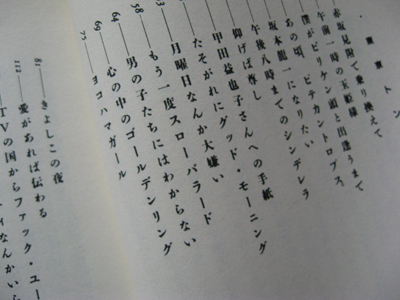 赤坂見附で乗り換えて
午前一時の玉姫様
僕がビリケン頭と出逢うまで
あの頃、ピテカントロプス
坂本龍一になりたい
午後八時までのシンデレラ
仰げば尊し
甲田益也子さんへの手紙
たそがれにグッド・モーニング
月曜日なんか大嫌い
もう一度スローバラード
男の子たちにはわからない
64 心の中のゴールデンリング
69 ヨコハマガール
73
81 きよしこの夜
112 愛があれば伝わる
TVの国からファック・ユー